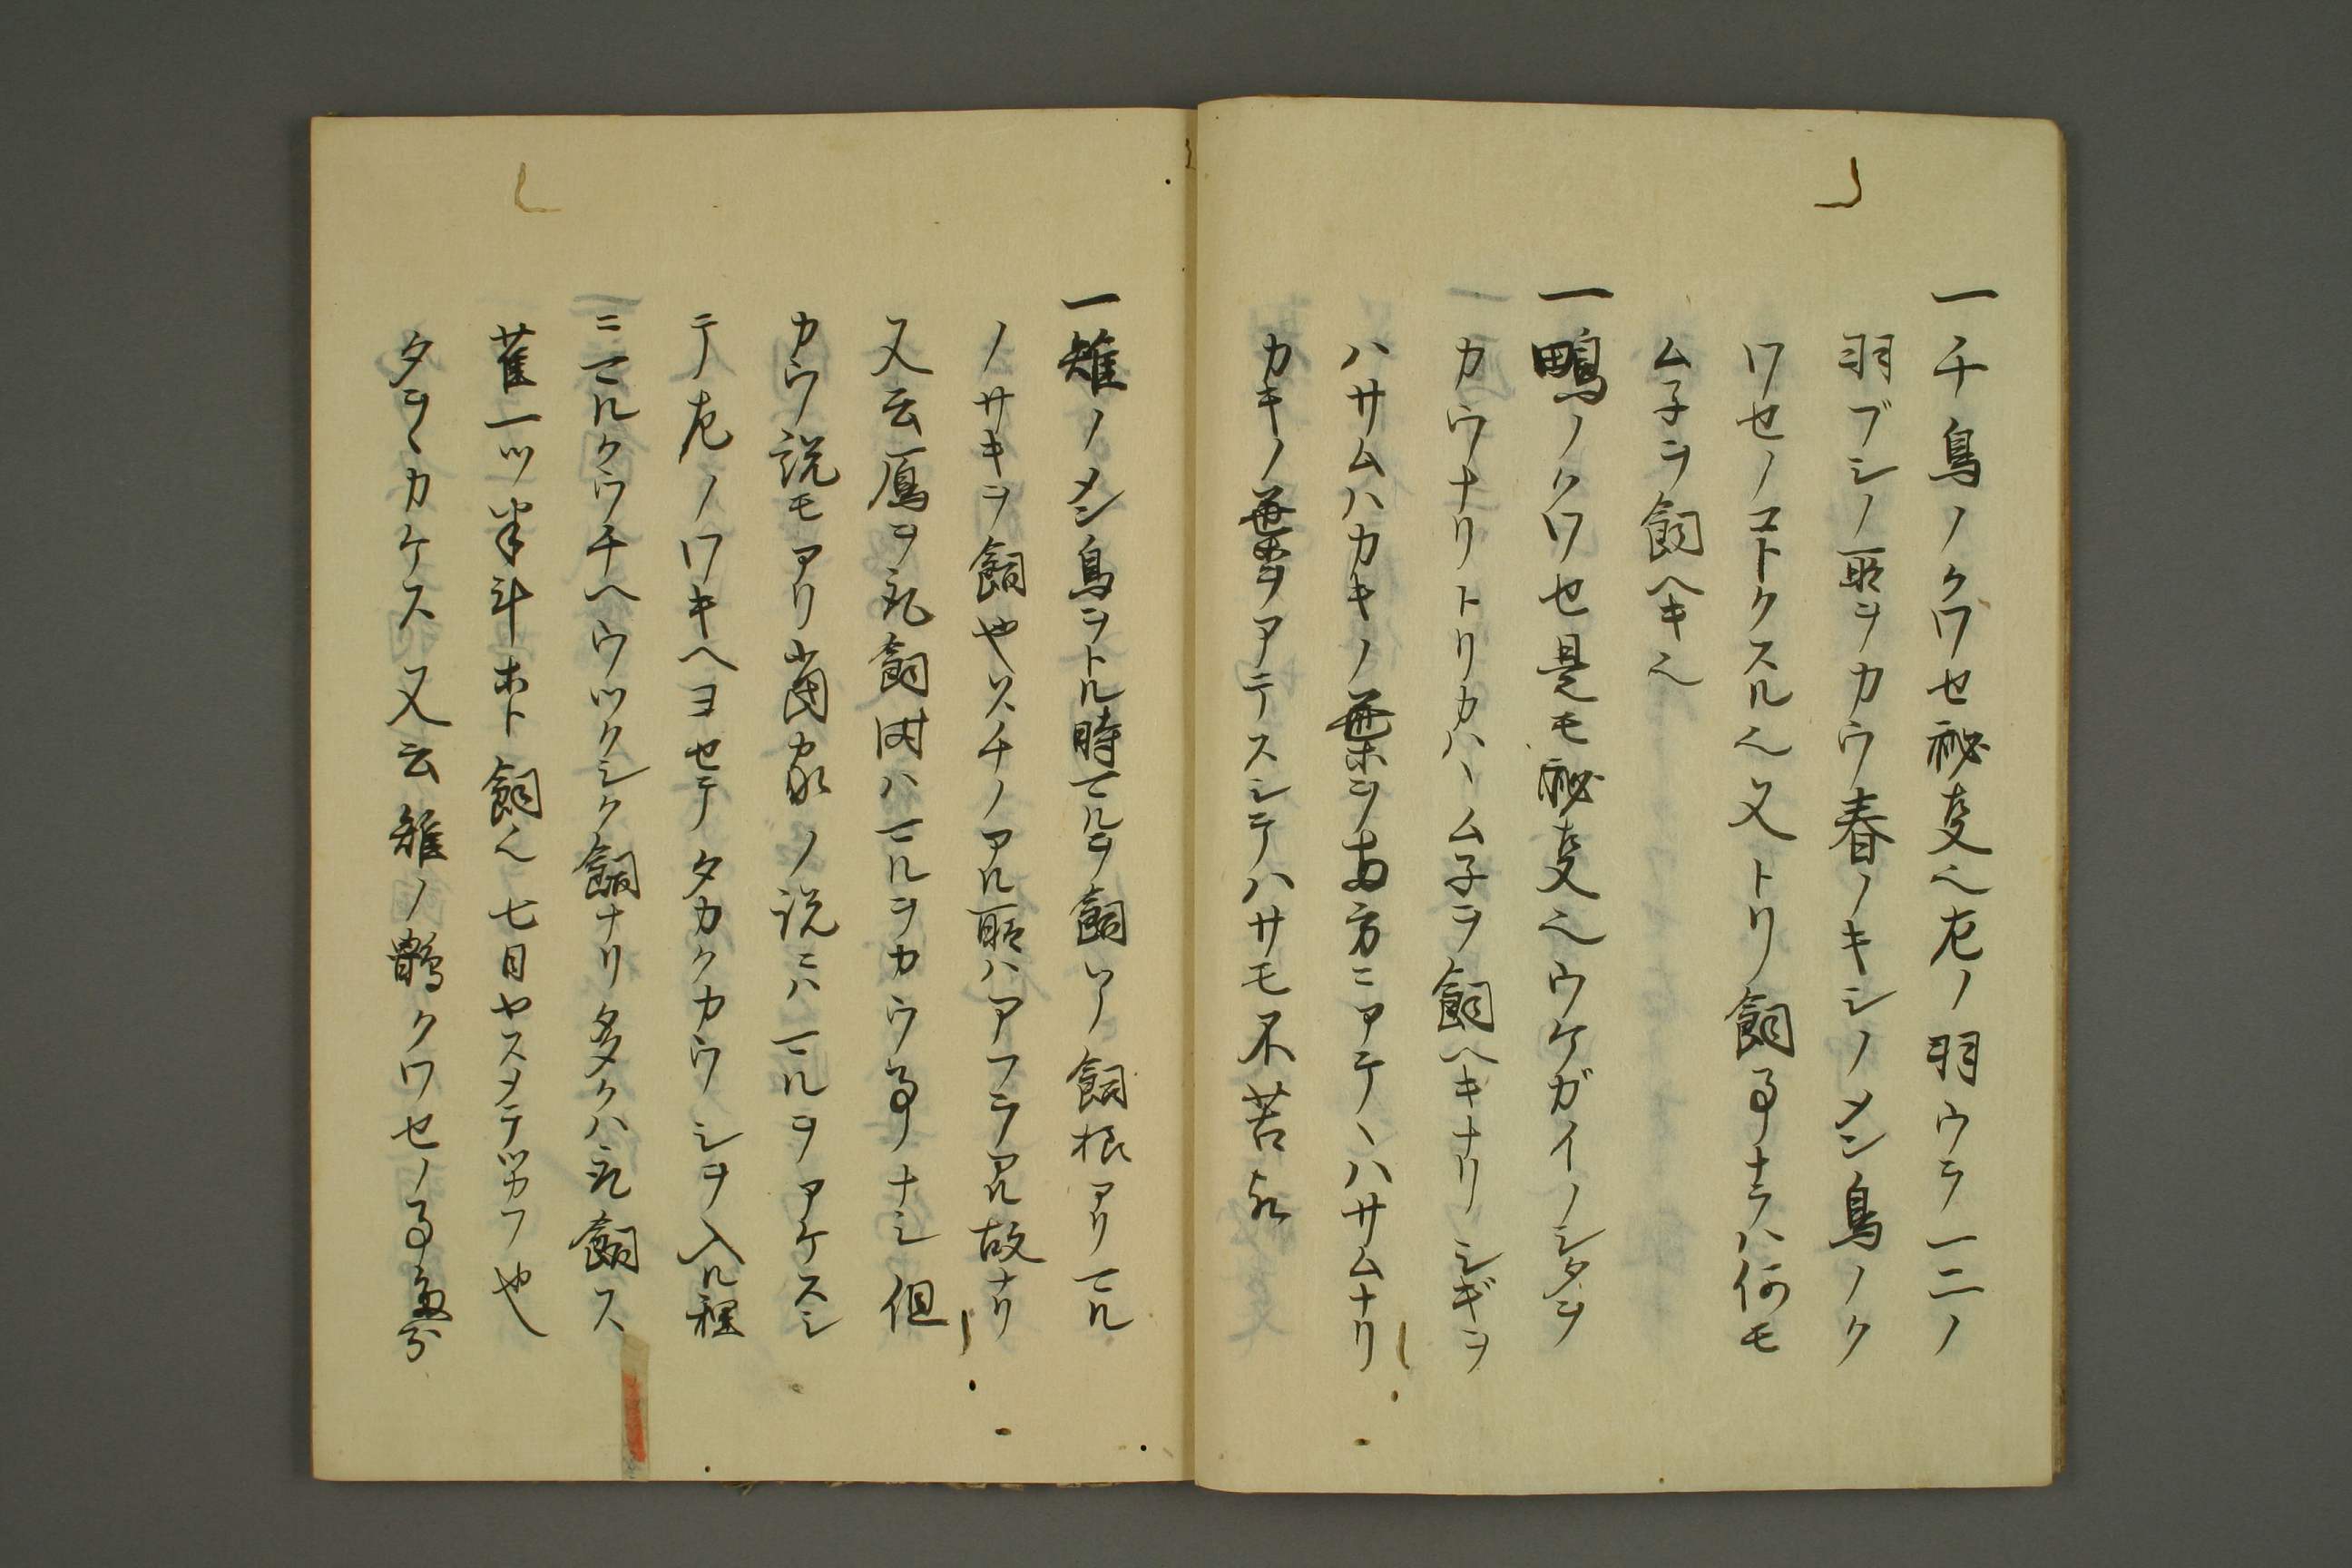 一千鳥ノクワセ秘事也左ノ羽ウラ一二ノ
羽ブシノ所ヲカウ春ノキシノメン鳥ノク
ワセノコトクスル也又トリ飼事ナラハ何モ
ム子ヲ飼ヘキ也
一鴫ノクワセ是モ秘事也ウケガイノシタヲ
カウナリトリカハヽム子ヲ飼ヘキナリシギヲ
ハサムハカキノ葉ヲ両方ニアテヽハサムナリ
カキノ葉ヲアテスシテハサモ不苦
一雉ノメン鳥ヲトル時マルヲ飼ト飼根アリマル
ノサキヲ飼也スチノアル所ハアフラアル故ナリ
又云鳫ヲ取飼時ハマルヲカウ事ナシ但
カウ説モアリ当家ノ説ニハマルヲアケスシ
テ左ノワキヘヨセテタカクカウシヲ入ル程
ニマルクウチヘウツクシク飼ナリ多クハ取飼ス
雀一ツ半斗ホト飼也七日ヤスメテツカフ也
タヲヽカケス又云雉ノ鶴クワセノ事